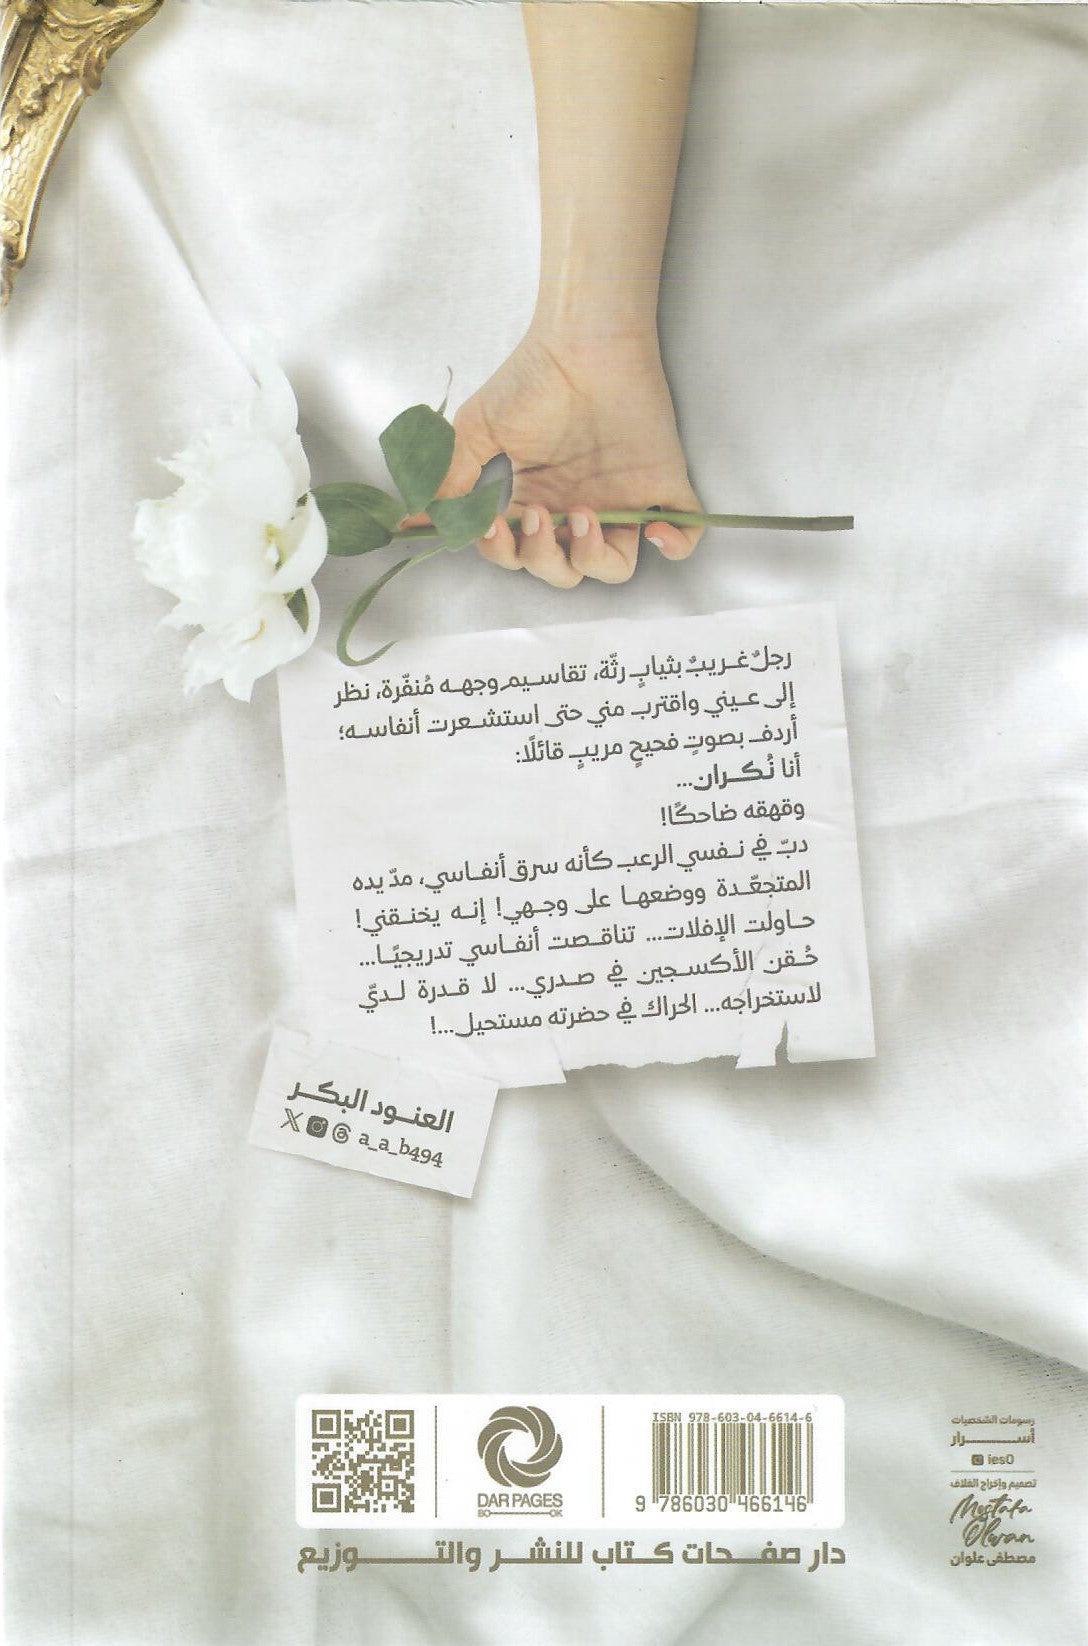 رجلٌ غريبٌ بثيابٍ رثّة، تقاسيم وجهه مُنفّرة، نظر
إلى عيني واقترب مني حتى استشعرت أنفاسه؛
أردف بصوتٍ فحيحٍ مريبٍ قائلًا:
أنا نُكران...
وقهقه ضاحكًا!
دبّ في نفسي الرعب كأنه سرق أنفاسي، مدّ يده
المتجعّدة ووضعها على وجهي! إنه يخنقني!
حاولت الإفلات... تناقصت أنفاسي تدريجيًا...
حُقن الأكسجين في صدري... لا قدرة لديّ
لاستخراجه... الحراك في حضرته مستحيل...!
العنود البكر
a_a_b494
ISBN 978-603-04-6614-6
9 786030 466146
DAR PAGES
BO OK
دار صفحات كتاب للنشر والتوزيع
رسومات الشخصيات
أسرار
ies0
تصميم وإخراج الغلاف
Mostafa
Olwan
مصطفى علوان